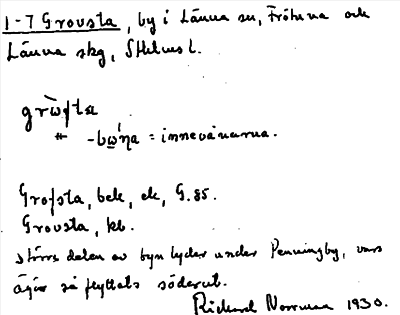 1-7 Grovsta, by i Länna sn, Fröhuna och
Länna skg, Sthlms l.
grὼfsta
-bώ̲ηa = innevånarna.
Grofsta, bek, ek, G.85.
Grovsta, kb.
större delen av byn lyder under Penningby, vars
ägor så flyttats söderut.
Richard Norrman 1930.